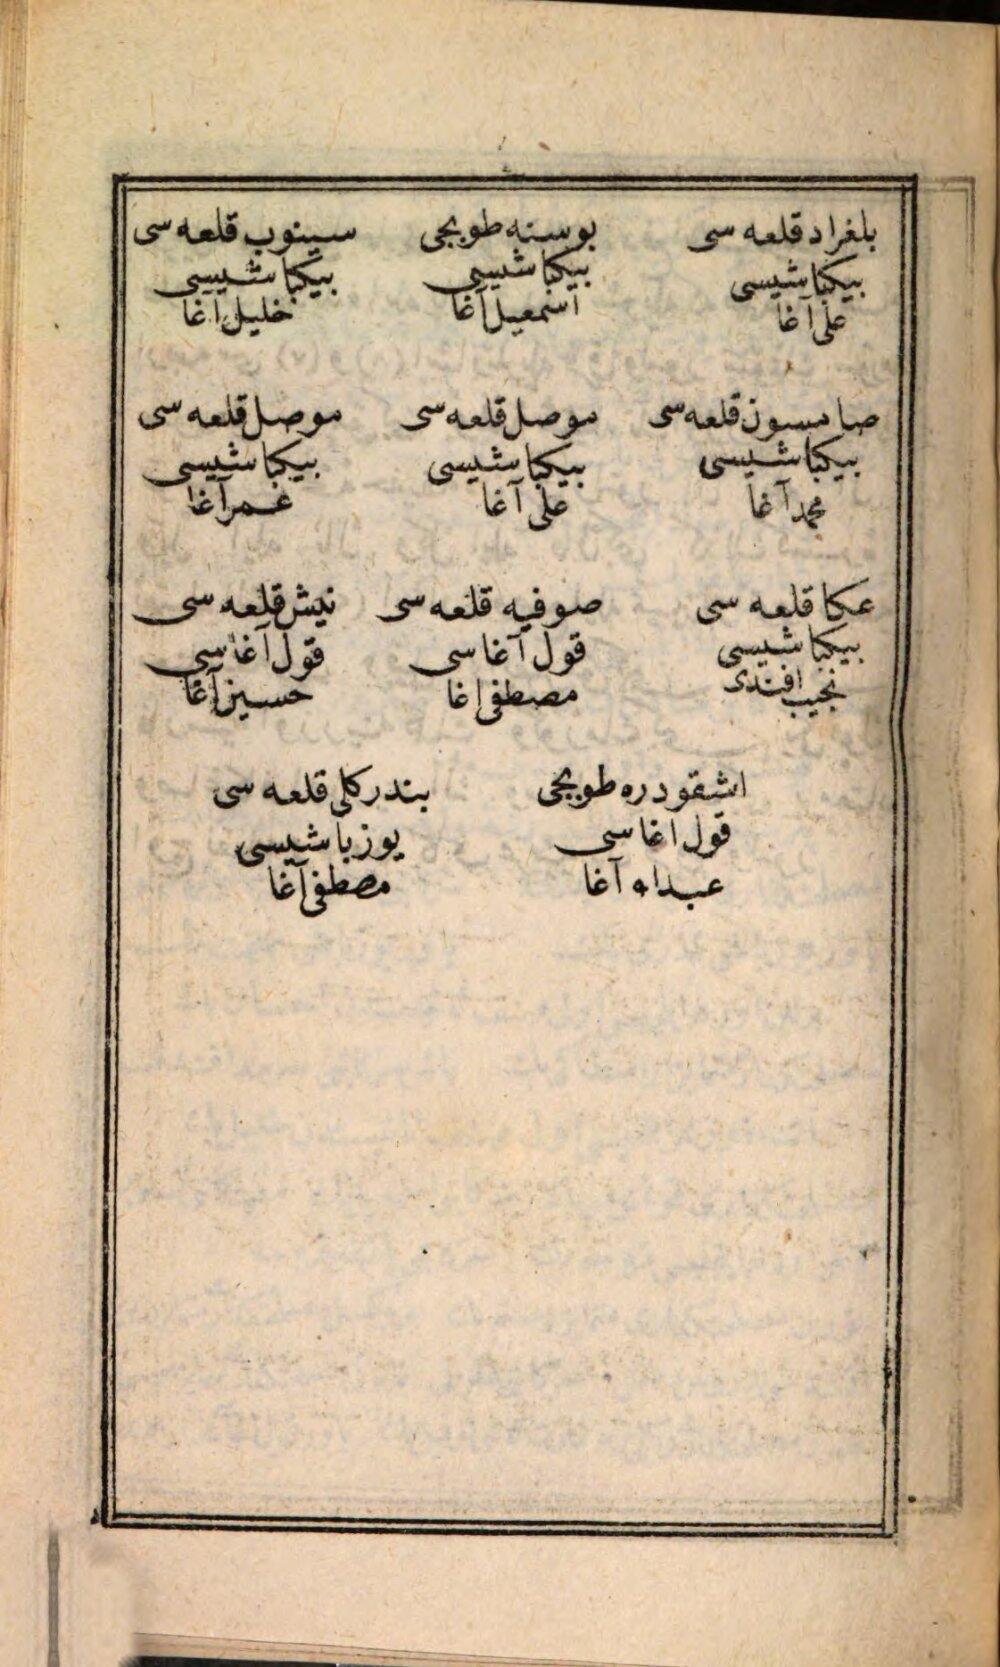 بلغراد قلعه سی
بیکباشیسی
علی آغا
بوسنه طوبجی
بیکباشیسی
اسمعیل آغا
سینوب قلعه سی
بیکباشیسی
خلیل اغا
صامسون قلعه سی
بیکباشیسی
محمد آغا
موصل قلعه سی
بیکباشیسی
علی آغا
موصل قلعه سی
بیکباشیسی
عمر آغا
عکا قلعه سی
بیکباشیسی
نجیب افندی
صوفیه قلعه سی
قول آغاسی
مصطفی اغا
نیش قلعه سی
قول آغاسی
حسین آغا
اشقودره طوبجی
قول اغاسی
عبدالله آغا
بندرکلی قلعه سی
یوزباشیسی
مصطفی آغا